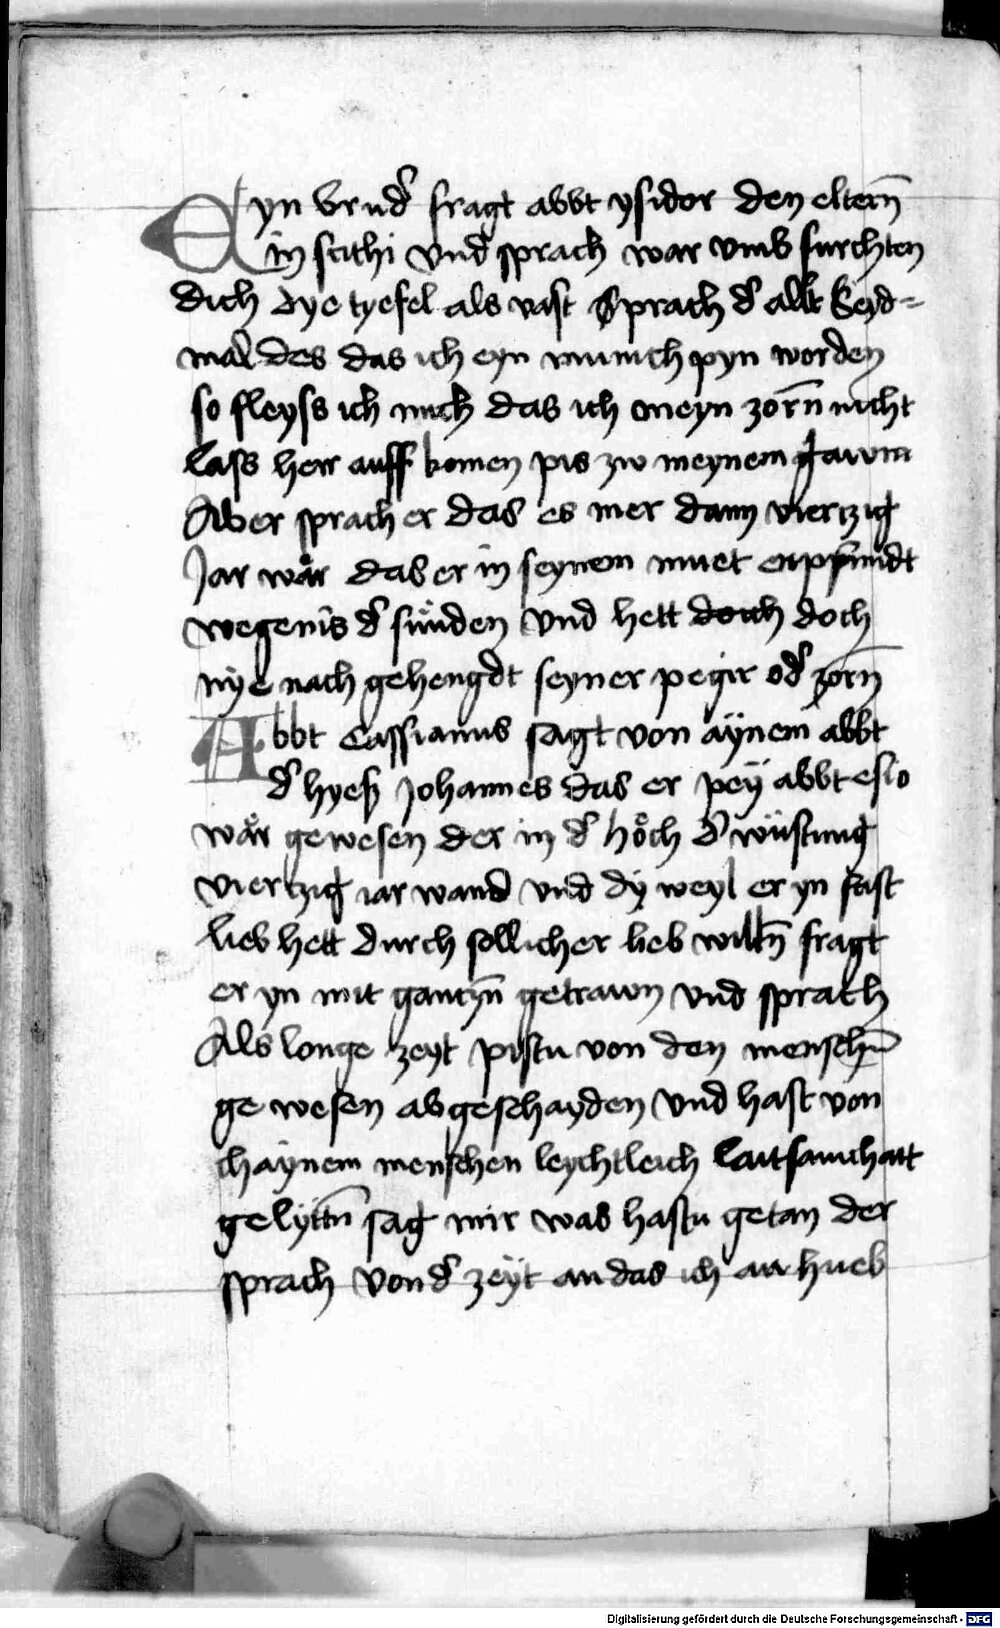 Eyn brud᷑ fragt abbt ysidor den elterñ
in scithi vnd sprach war vmb furchten
dich dye tyefel als vast Sprach d᷑ allt Seyd-
mal des das ich eyn munich pyn worden
so fleyss ich mich das ich meyn zorñ nicht
lass herr auff komen pis zw meynem gawm
Aber sprach er das es mer dann viertzig
Jar wår das er in seynem muet enpfindt
wegenis d᷑ sünden vnd hett doch doch
nÿe nach gehengdt seyner pegir od᷑ zorñ
Abbt Cassianus sagt von aÿnem abbt
d᷑ hyess Johannes das er peÿ abbt esio
wår gewesen der in d᷑ höch d᷑ wüstung
viertzig iar wand vnd dÿ weyl er yn fast
lieb hett durch sollicher lieb willñ fragt
er yn mit gantzñ getrawn vnd sprach
Als longe zeyt pistu von den mensch̄n
gewesen abgeschayden vnd hast von
chaÿnem menschen leychtleich laitsamchait
gelÿttñ sag mir was hastu getan der
sprach von d᷑ zeÿt an das ich an hueb
Digitalisierung gefördert durch die Deutsche Forschungsgemeinschaft - DFG